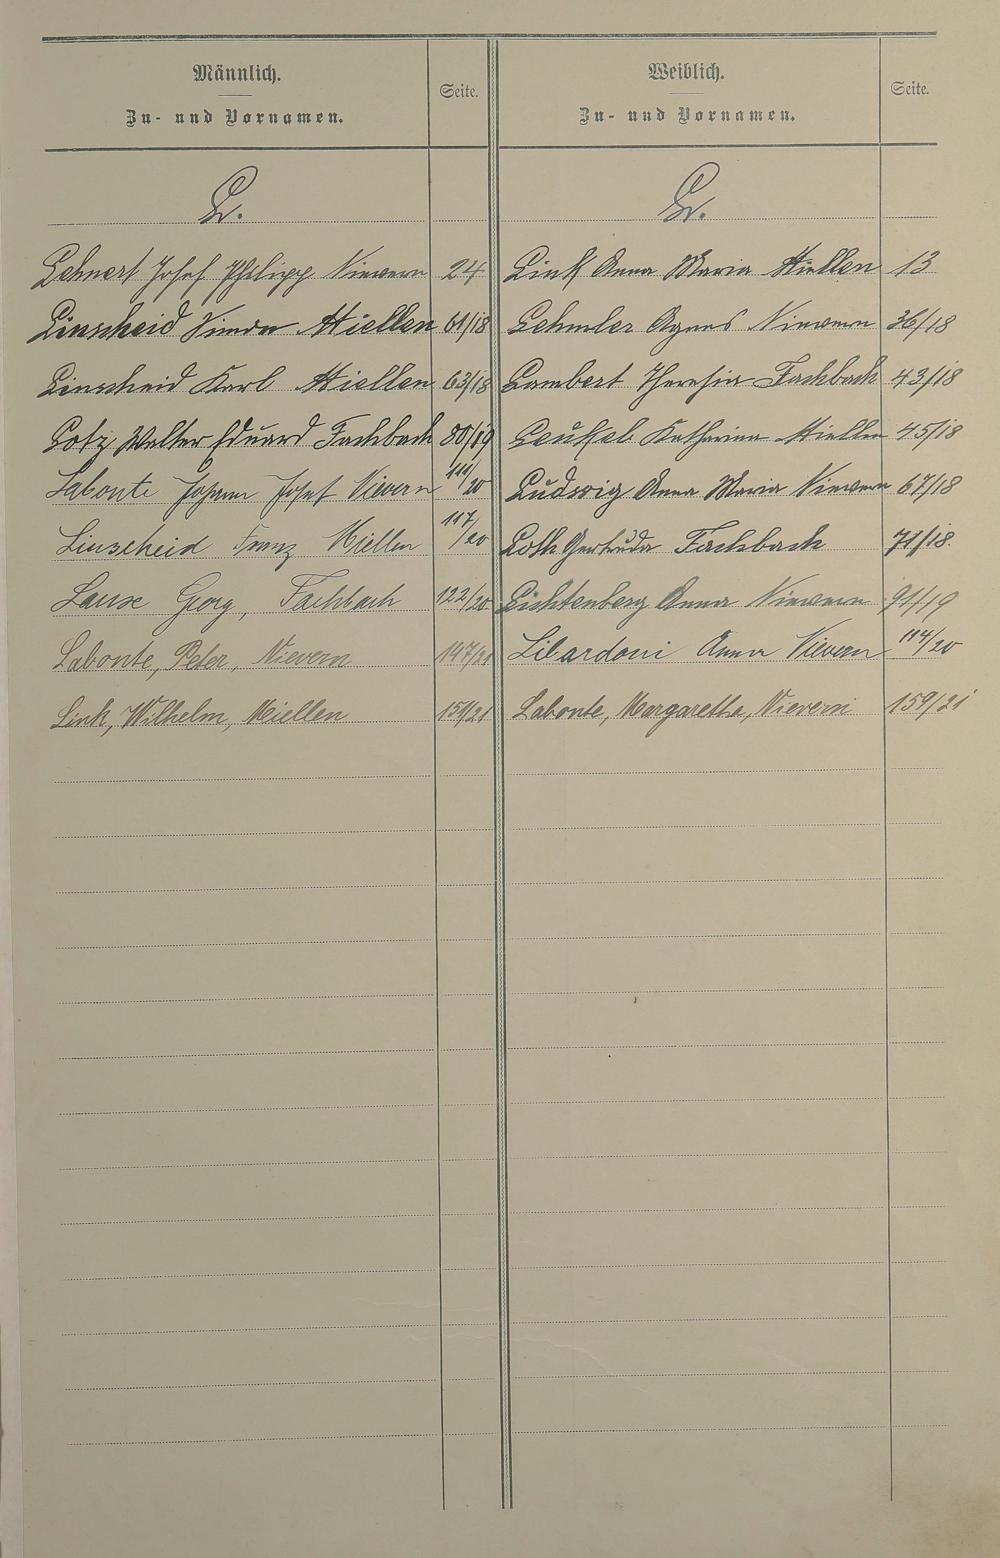 Männlich.
Zu- und Vornamen.
Seite.
Weiblich.
Zu- und Vornamen.
Seite.
L.
Lehnert Josef Philipp Nievern 24
Linscheid Simon Miellen 61/18
Linscheid Karl Miellen 63/18
Lotz Walter Eduard Fachbach 80/19
Labonte Johann Josef Nievern 111/20
Linscheid Franz Miellen 117/20
Lause Georg, Fachbach 122/20
Labonte, Peter, Nievern 147/21
Link, Wilhelm, Miellen 151/21
L.
Link Anna Maria Miellen 13
Lehmler Agnes Nievern 36/18
Lambert Theresia Fachbach 43/18
Katharina Miellen 45/18
Ludwig Anna Maria Nievern 67/18
Loth Gertruda Fachbach 71/18.
Lichtenberg Anna Nievern 91/19
Libardoni Anna Nievern 114/20
Labonte, Margarethe, Nievern 159/21